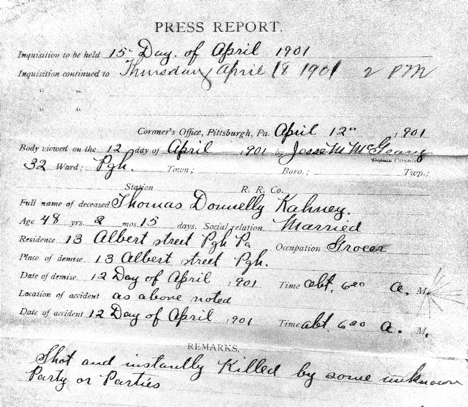 PRESS REPORT.
Inquisition to be held 15" Day. of April 1901
Inquisition continued to Thursday April 18 1901 2 PM
" "
" "
Coroner's Office, Pittsburgh, Pa. April 12" 1901
Body viewed on the 12 day of April 1901 by Jesse M McGeary
32 Ward; Pgh. Town; Boro.; Twp.;
Station R. R. Co.
Full name of deceased Thomas Donnelly Kahney.
Age 48 yrs. 2 mos. 15 days. Social relation Married
Residence 13 Albert street Pgh Pa Occupation Grocer
Place of demise. 13 Albert street Pgh.
Date of demise. 12 Day of April 1901 Time abt. 6 00 a. M.
Location of accident as above noted
Date of accident 12 Day of April 1901 Time abt. 6 00 a. M.
REMARKS.
Shot and instantly Killed by some unknown
Party or Parties